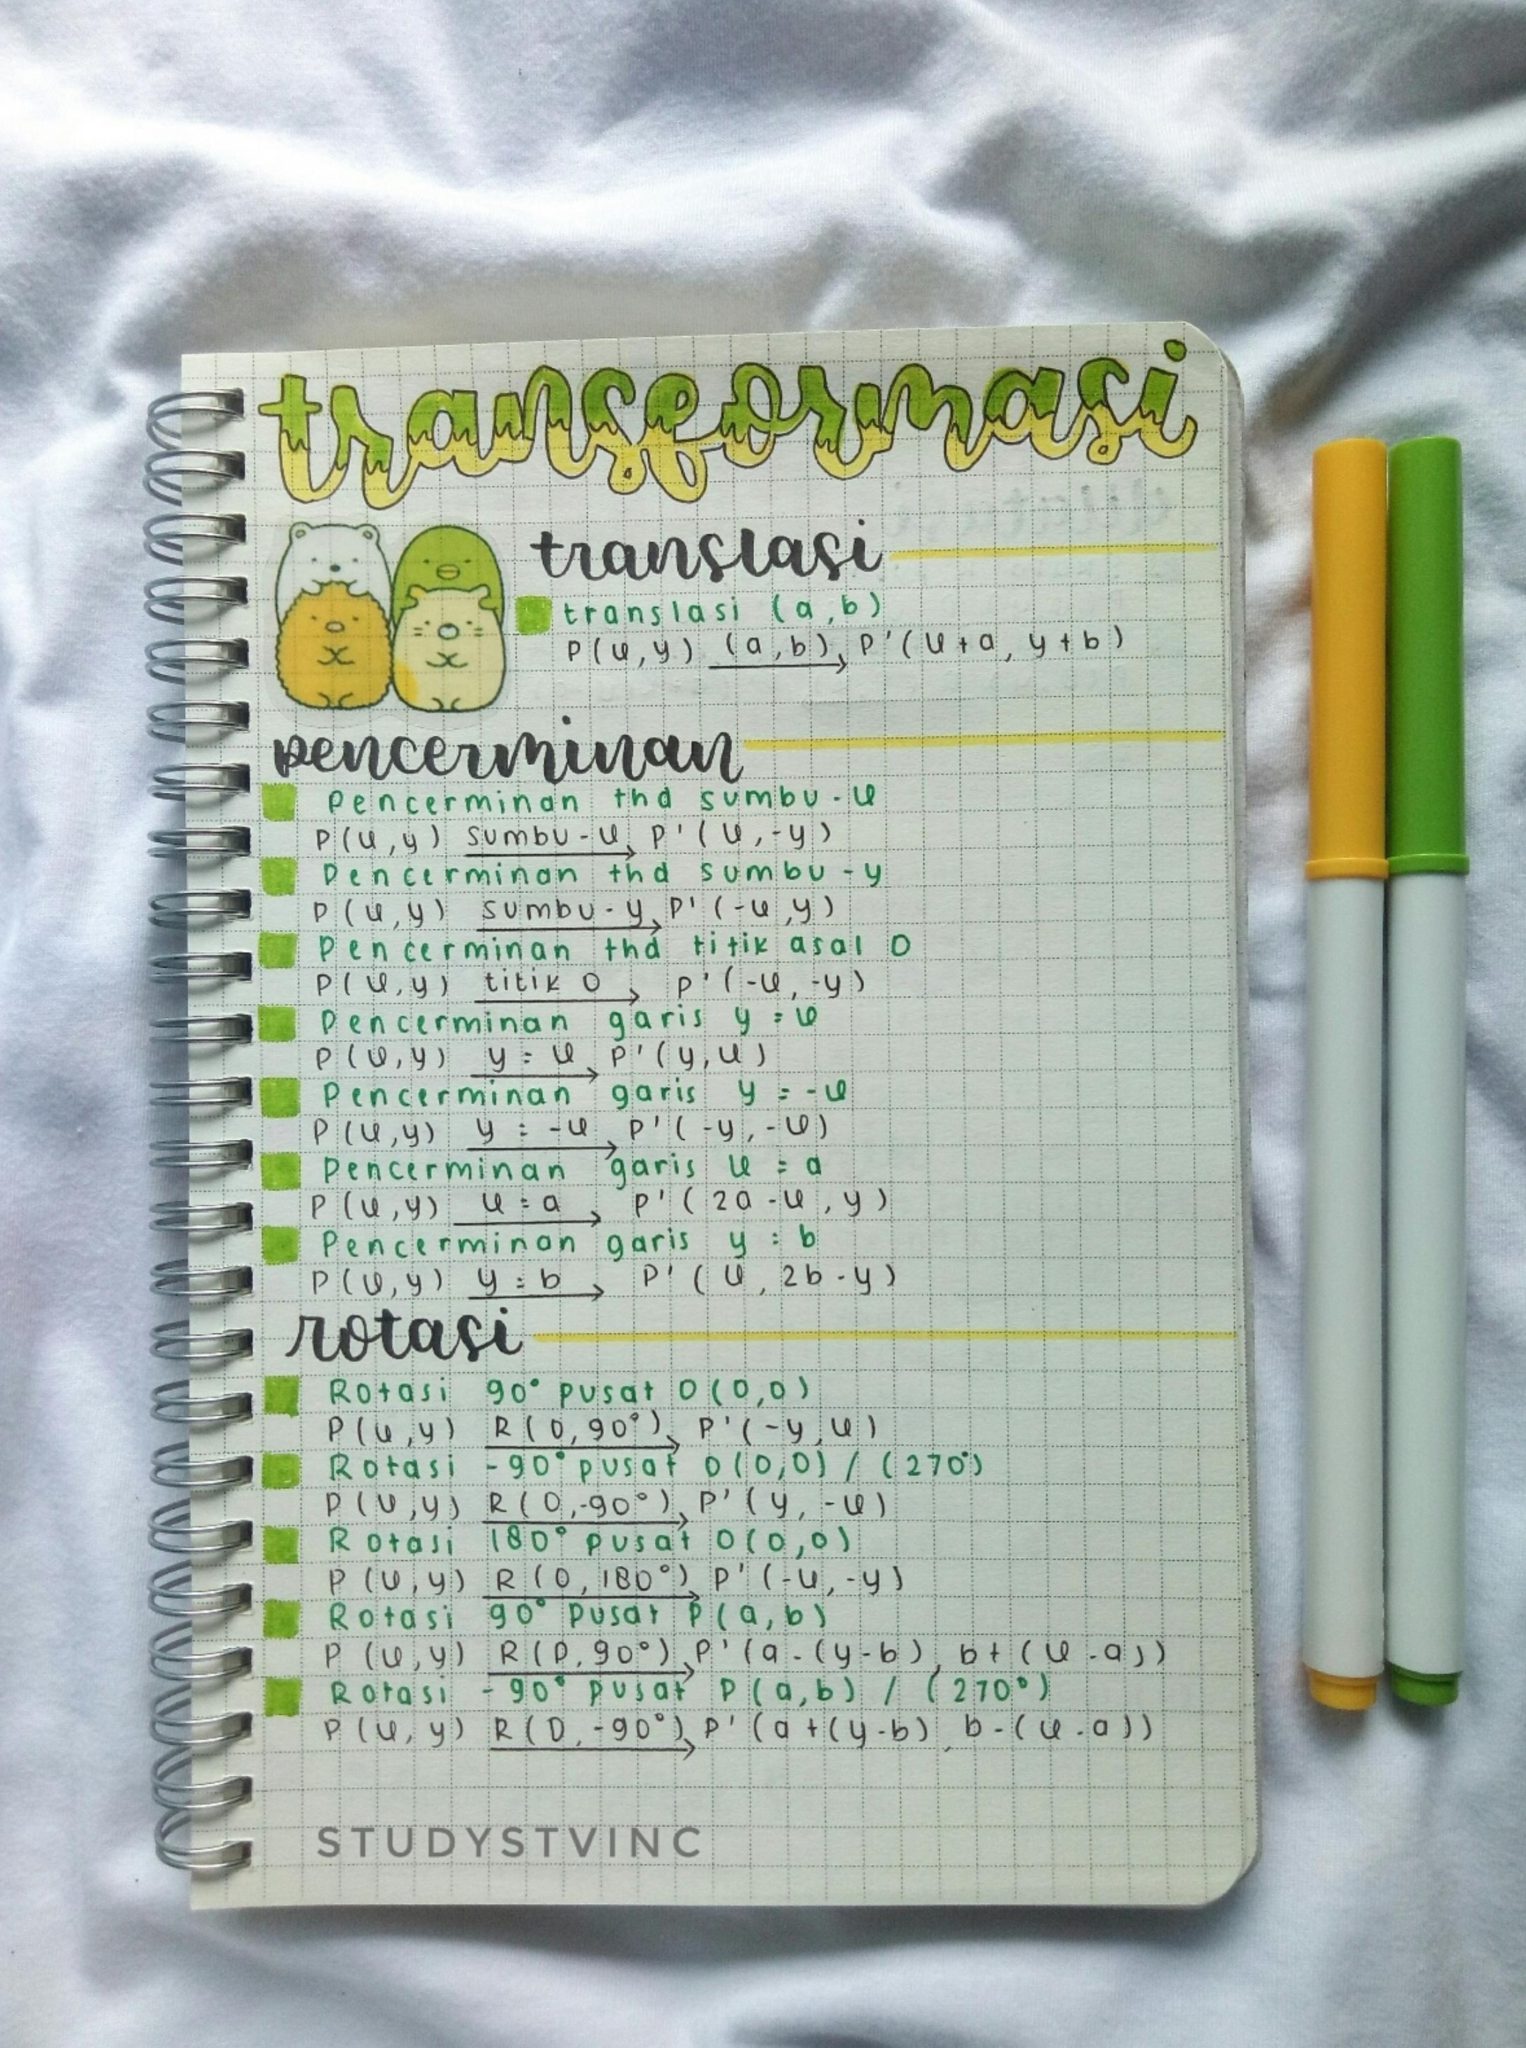 transformasi
translasi
translasi (a,b)
P(x,y) (a,b)→ P'(x+a, y+b)
pencerminan
Pencerminan thd sumbu-x
P(x,y) sumbu-x→ P'(x,-y)
Pencerminan thd sumbu-y
P(x,y) sumbu-y→ P'(-x,y)
Pencerminan thd titik asal O
P(x,y) titik O→ P'(-x,-y)
Pencerminan garis y=x
P(x,y) y=x→ P'(y,x)
Pencerminan garis y=-x
P(x,y) y=-x→ P'(-y,-x)
Pencerminan garis x=a
P(x,y) x=a→ P'(2a-x,y)
Pencerminan garis y=b
P(x,y) y=b→ P'(x,2b-y)
rotasi
Rotasi 90° pusat O(0,0)
P(x,y) R(0,90°)→ P'(-y,x)
Rotasi -90° pusat O(0,0) / (270°)
P(x,y) R(0,-90°)→ P'(y,-x)
Rotasi 180° pusat O(0,0)
P(x,y) R(0,180°)→ P'(-x,-y)
Rotasi 90° pusat P(a,b)
P(x,y) R(P,90°)→ P'(a-(y-b), b+(x-a))
Rotasi -90° pusat P(a,b) / (270°)
P(x,y) R(0,-90°)→ P'(a+(y-b), b-(x-a))
STUDYSTVINC